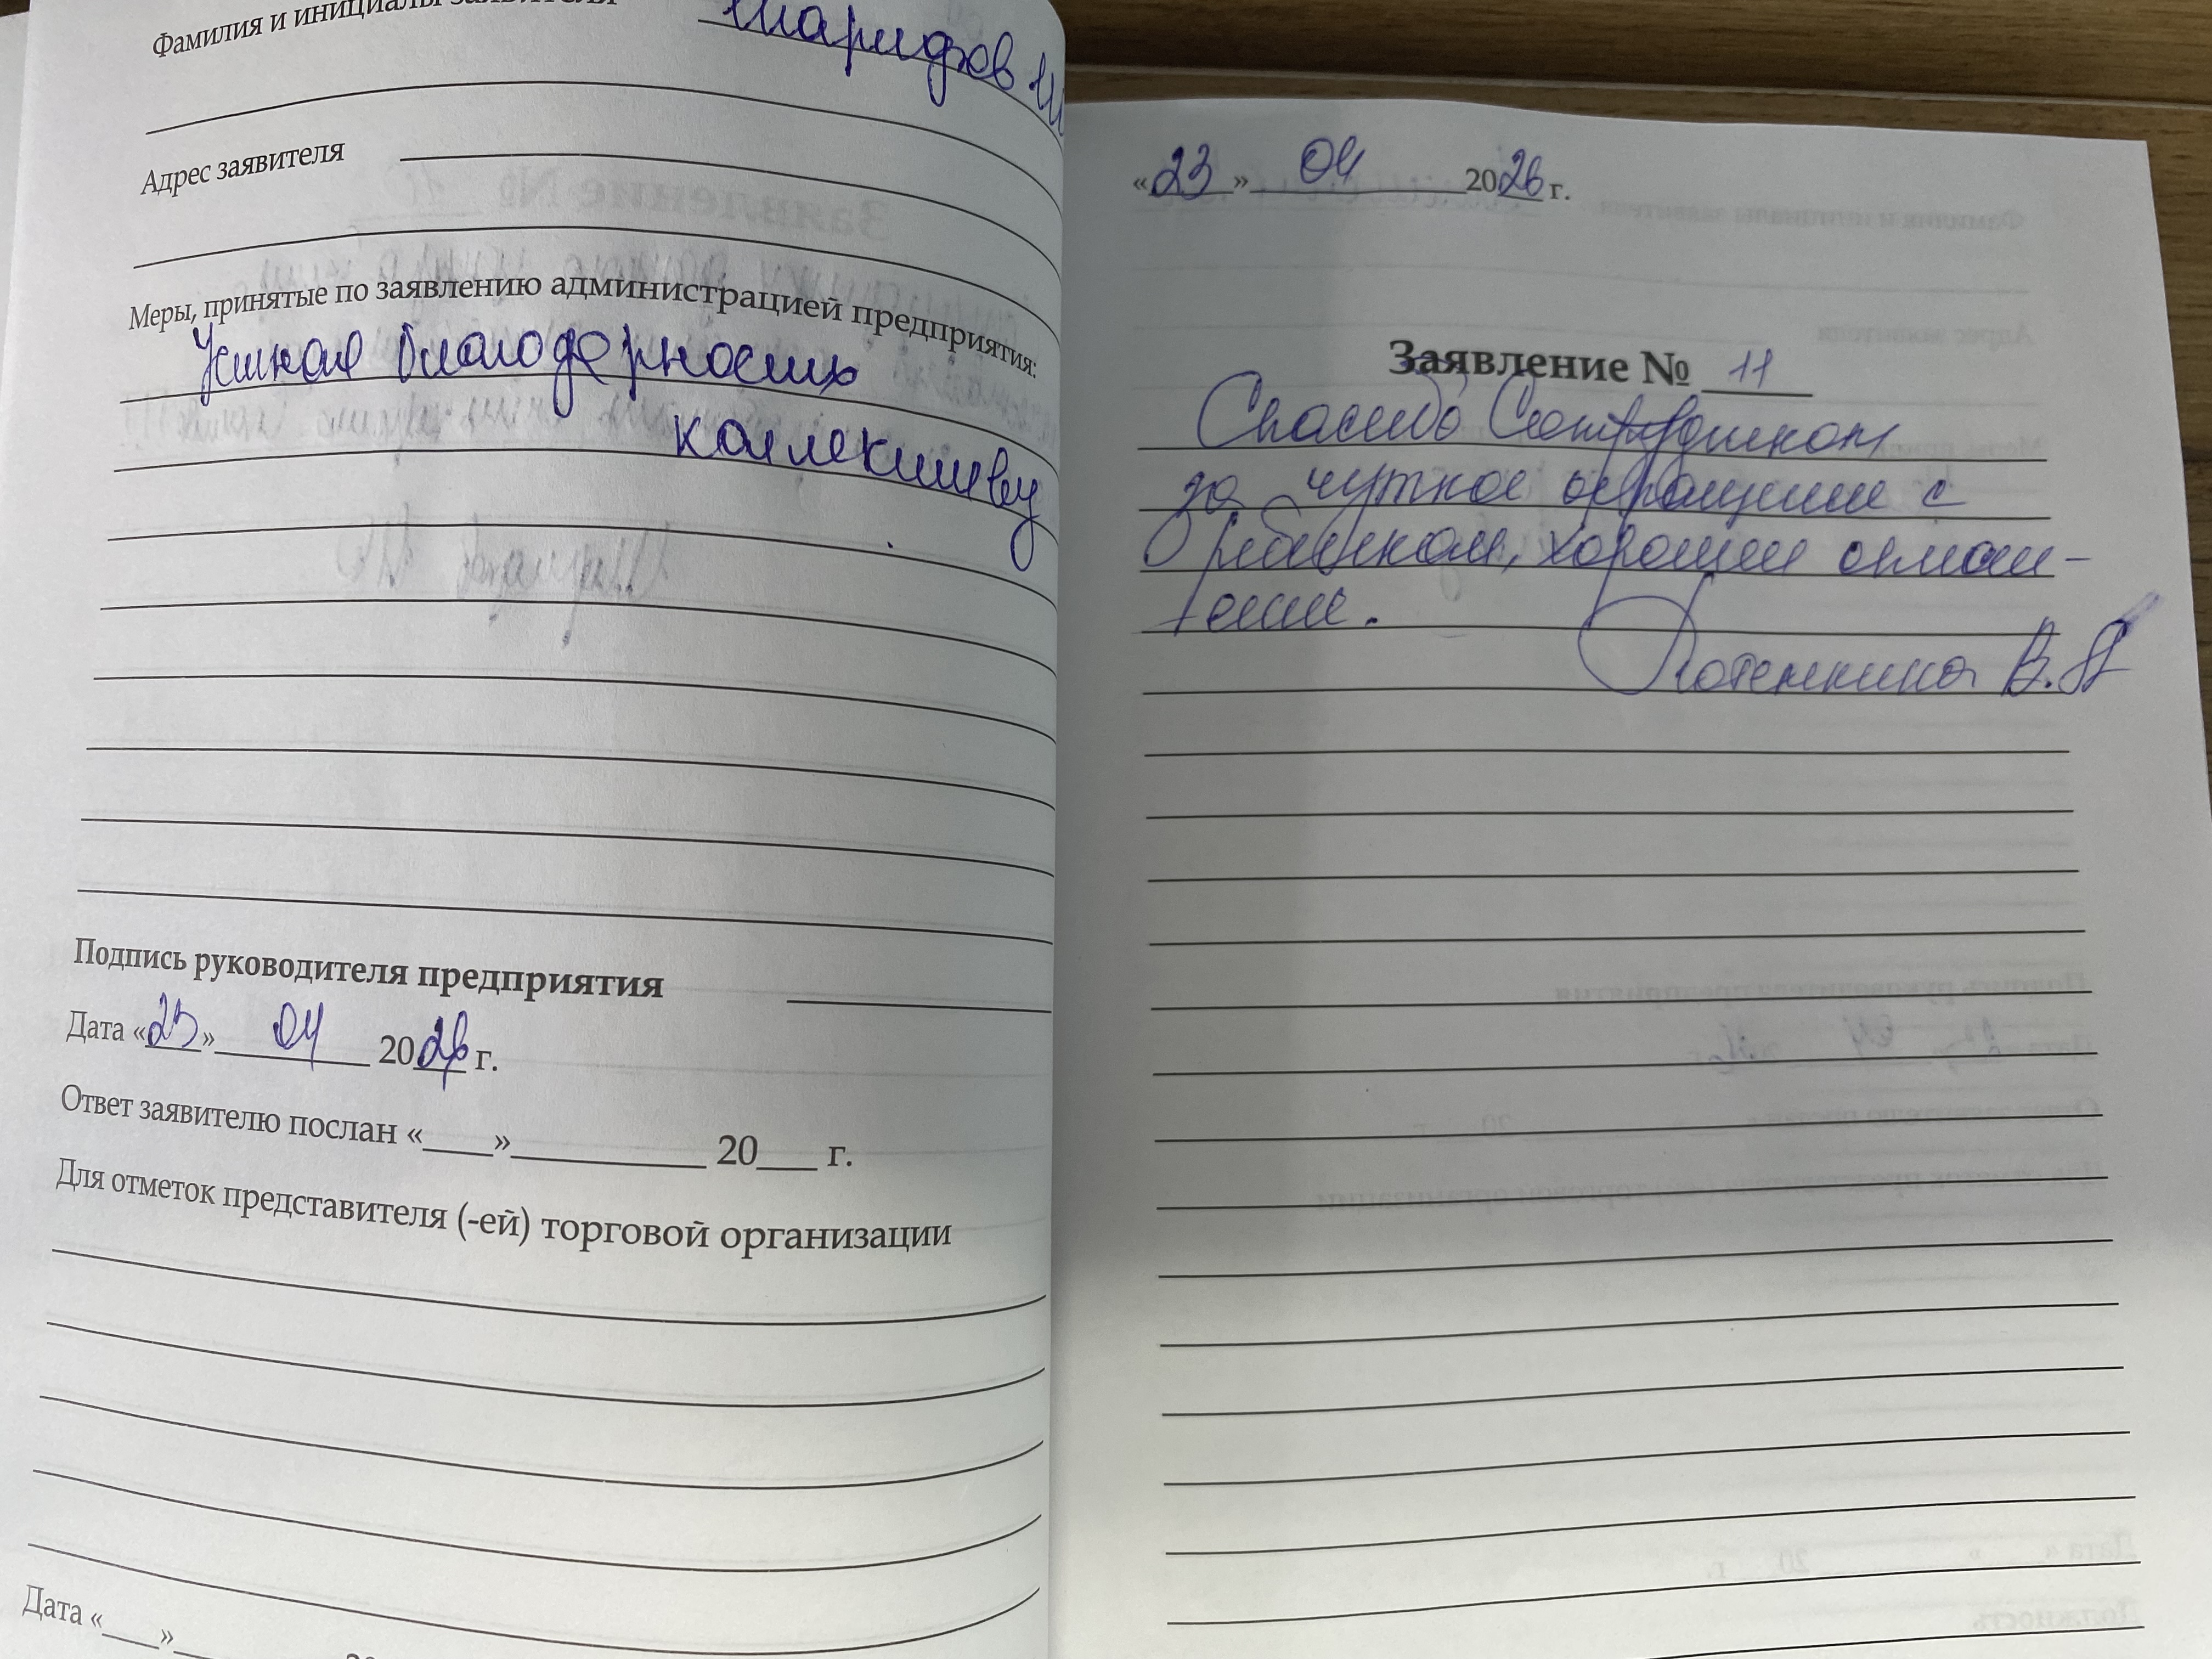 Фамилия и инициалы заявителя Шарифов И
Адрес заявителя
Меры, принятые по заявлению администрацией предприятия:
Устная благодерность
коллективу
Подпись руководителя предприятия
Дата «23» 04 2026 г.
Ответ заявителю послан «____»__________ 20___ г.
Для отметок представителя (-ей) торговой организации
Дата «____»
«23» 04 2026 г.
Заявление № 11
Спасибо Сотрудникам
за чуткое обращение с
Ребенком, хорошее отнош-
ение.
Потемкина В.П